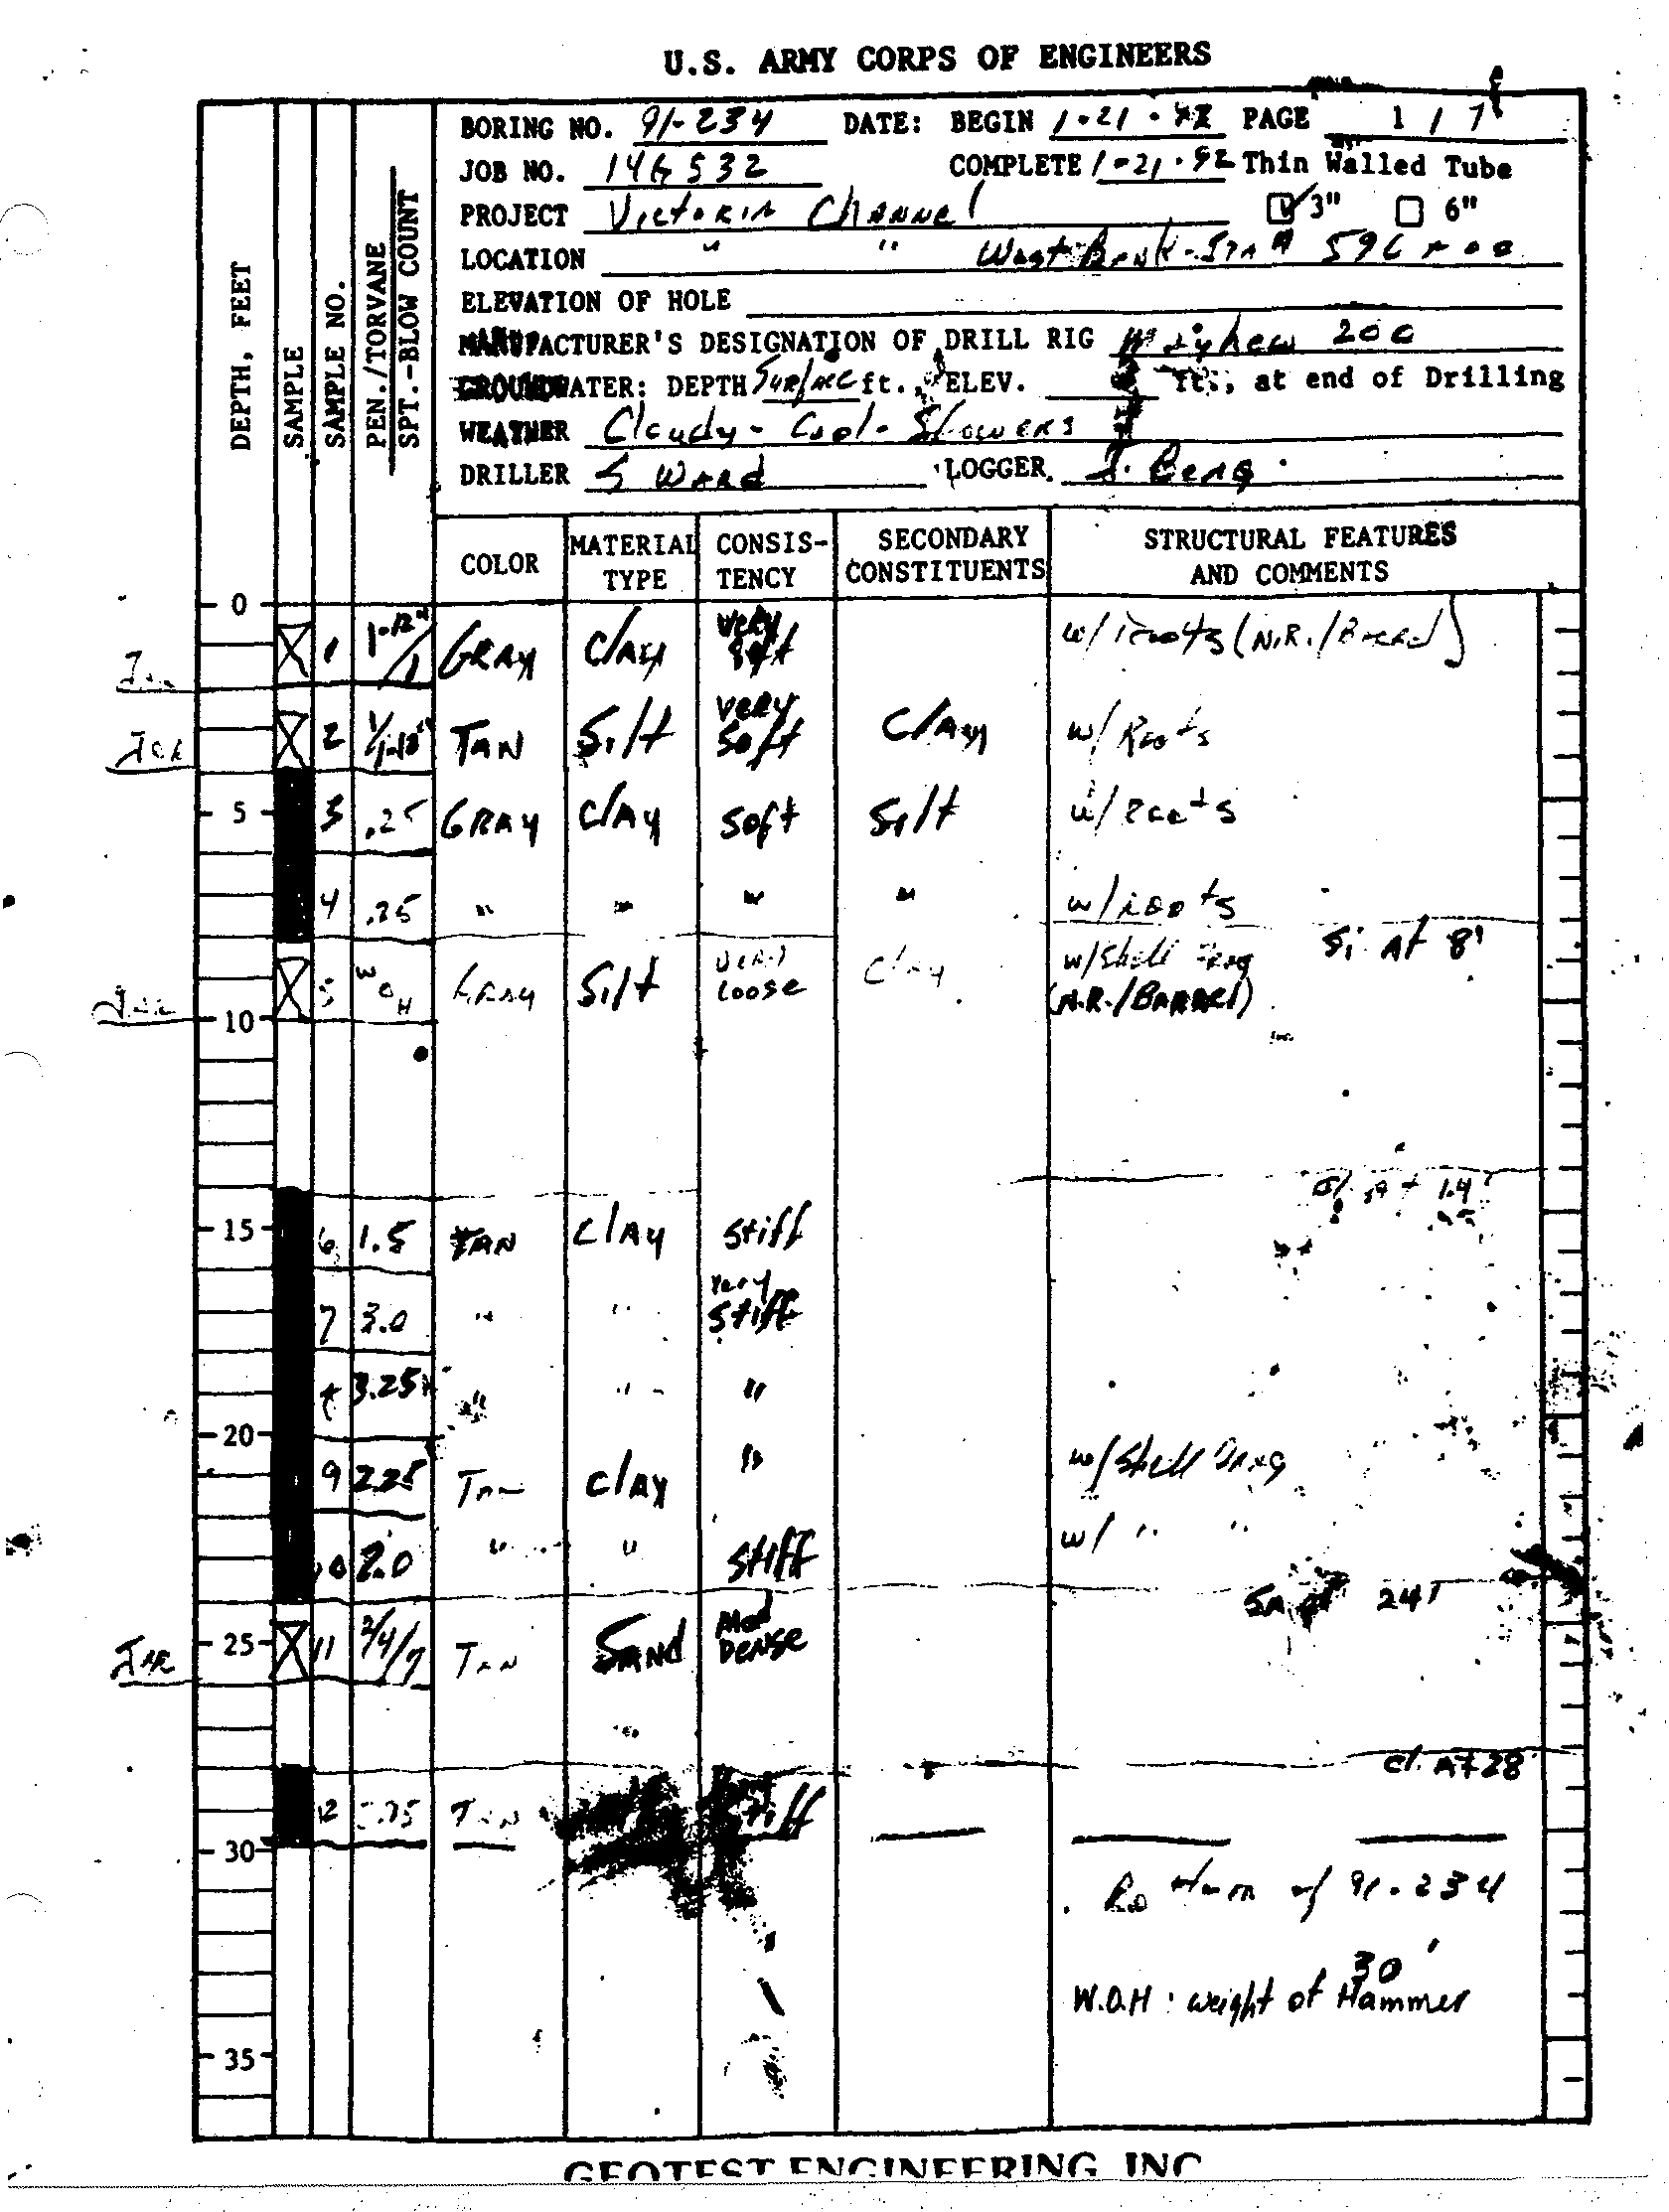 U.S. ARMY CORPS OF ENGINEERS
BORING NO. 91-234 DATE: BEGIN 1-21-92 PAGE 1 / 1
JOB NO. 14G532 COMPLETE 1-21-92 Thin Walled Tube
PROJECT Victoria Channel 3" 6"
LOCATION " " West Bank - STA 596+00
ELEVATION OF HOLE
MANUFACTURER'S DESIGNATION OF DRILL RIG Mayhew 200
GROUNDWATER: DEPTH Surface ft., ELEV. ft., at end of Drilling
WEATHER Cloudy - Cool - Showers
DRILLER S Ward LOGGER J. Berg
DEPTH, FEET
SAMPLE
SAMPLE NO.
PEN./TORVANE
SPT.-BLOW COUNT
COLOR MATERIAL TYPE CONSIS-TENCY SECONDARY CONSTITUENTS STRUCTURAL FEATURES AND COMMENTS
0
Jar 1 1-12"/1 GRAY Clay very soft w/ roots (N.R./Barrel)
Jar 2 1/1-18" TAN Silt very soft Clay w/ Roots
5 3 .25 GRAY Clay soft Silt w/ roots
4 .25 " " " " w/ roots
Si at 8'
Jar 5 WOH Gray Silt very loose Clay w/ Shell Frag
10 (N.R./Barrel)
si at 14'
15 6 1.5 TAN Clay stiff
7 3.0 " " very stiff
8 3.25 " " "
20
9 2.25 Tan Clay " w/ Shell Frag
10 2.0 " " stiff w/ " "
Sa at 24'
Jar 25 11 2/4/7 Tan Sand Med Dense
Cl. At 28'
12 .75 Tan stiff
30
Bottom of 91-234
30'
W.O.H : weight of Hammer
35
GEOTEST ENGINEERING INC